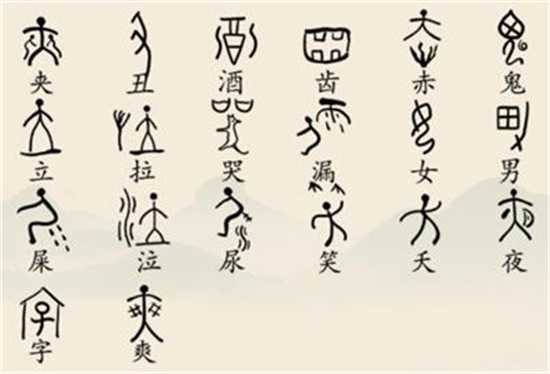 夹 丑 酒 齿 赤 鬼
立 拉 哭 漏 女 男
屎 泣 尿 笑 夭 夜
字 爽